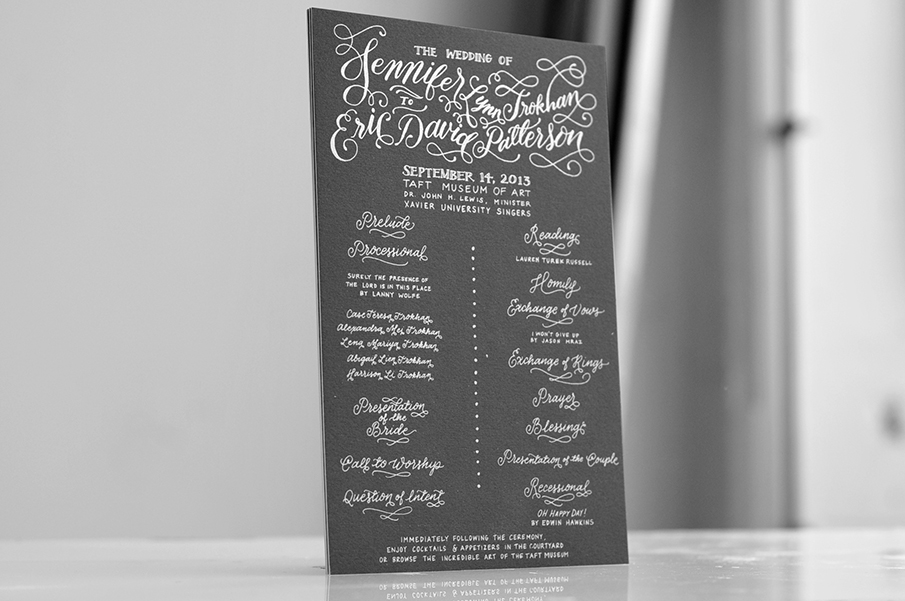 THE WEDDING OF
Jennifer Lynn Trokhan
To
Eric David Patterson
SEPTEMBER 14, 2013
TAFT MUSEUM OF ART
DR. JOHN H. LEWIS, MINISTER
XAVIER UNIVERSITY SINGERS
Prelude
Processional
SURELY THE PRESENCE OF
THE LORD IS IN THIS PLACE
BY LANNY WOLFE
Case Teresa Trokhan
Alexandra Mei Trokhan
Lena Mariya Trokhan
Abigail Lien Trokhan
Harrison Li Trokhan
Presentation
of the
Bride
Call to Worship
Question of Intent
Reading
LAUREN TUREK RUSSELL
Homily
Exchange of Vows
I WON'T GIVE UP
BY JASON MRAZ
Exchange of Rings
Prayer
Blessing
Presentation of the Couple
Recessional
OH HAPPY DAY!
BY EDWIN HAWKINS
IMMEDIATELY FOLLOWING THE CEREMONY,
ENJOY COCKTAILS & APPETIZERS IN THE COURTYARD
OR BROWSE THE INCREDIBLE ART OF THE TAFT MUSEUM